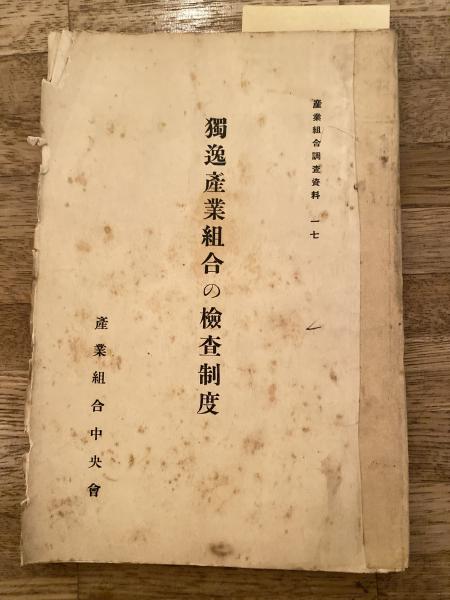 産業組合調査資料 一七
獨逸産業組合の檢査制度
産業組合中央會